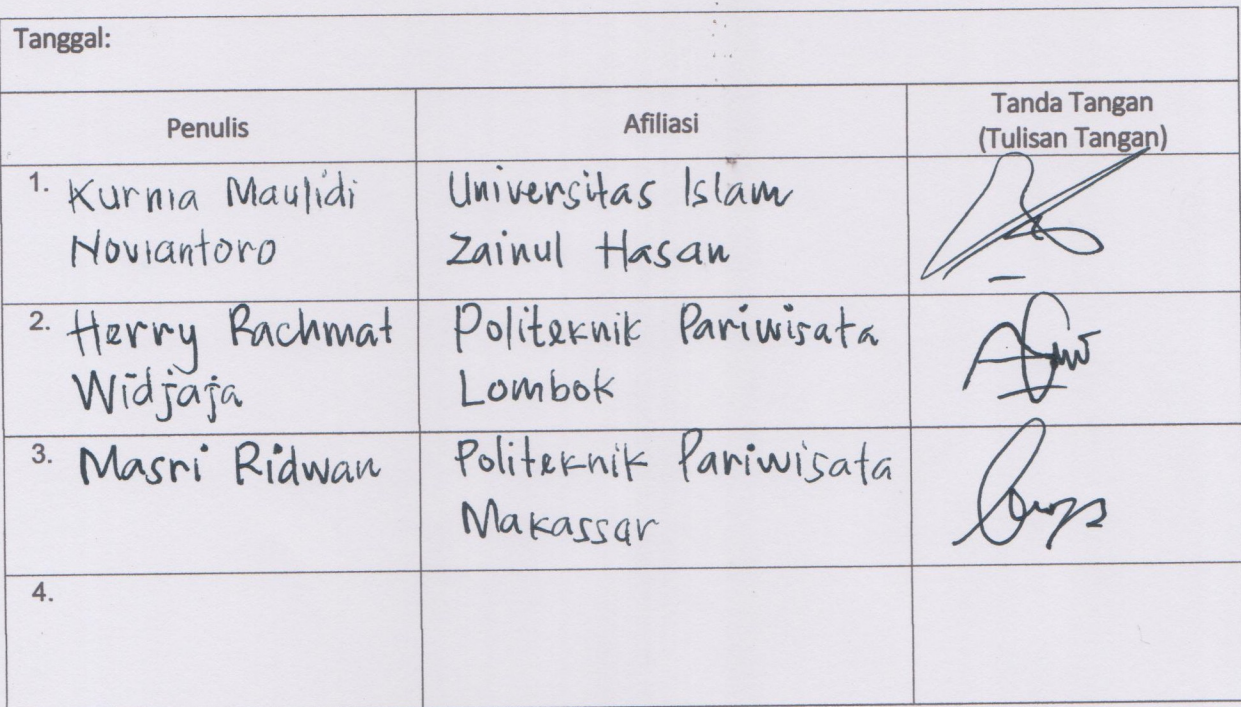 Tanggal:
Penulis
Afiliasi
Tanda Tangan
(Tulisan Tangan)
1. Kurnia Maulidi
Noviantoro
Universitas Islam
Zainul Hasan
2. Herry Rachmat
Widjaja
Politeknik Pariwisata
Lombok
3. Masri Ridwan
Politeknik Pariwisata
Makassar
4.